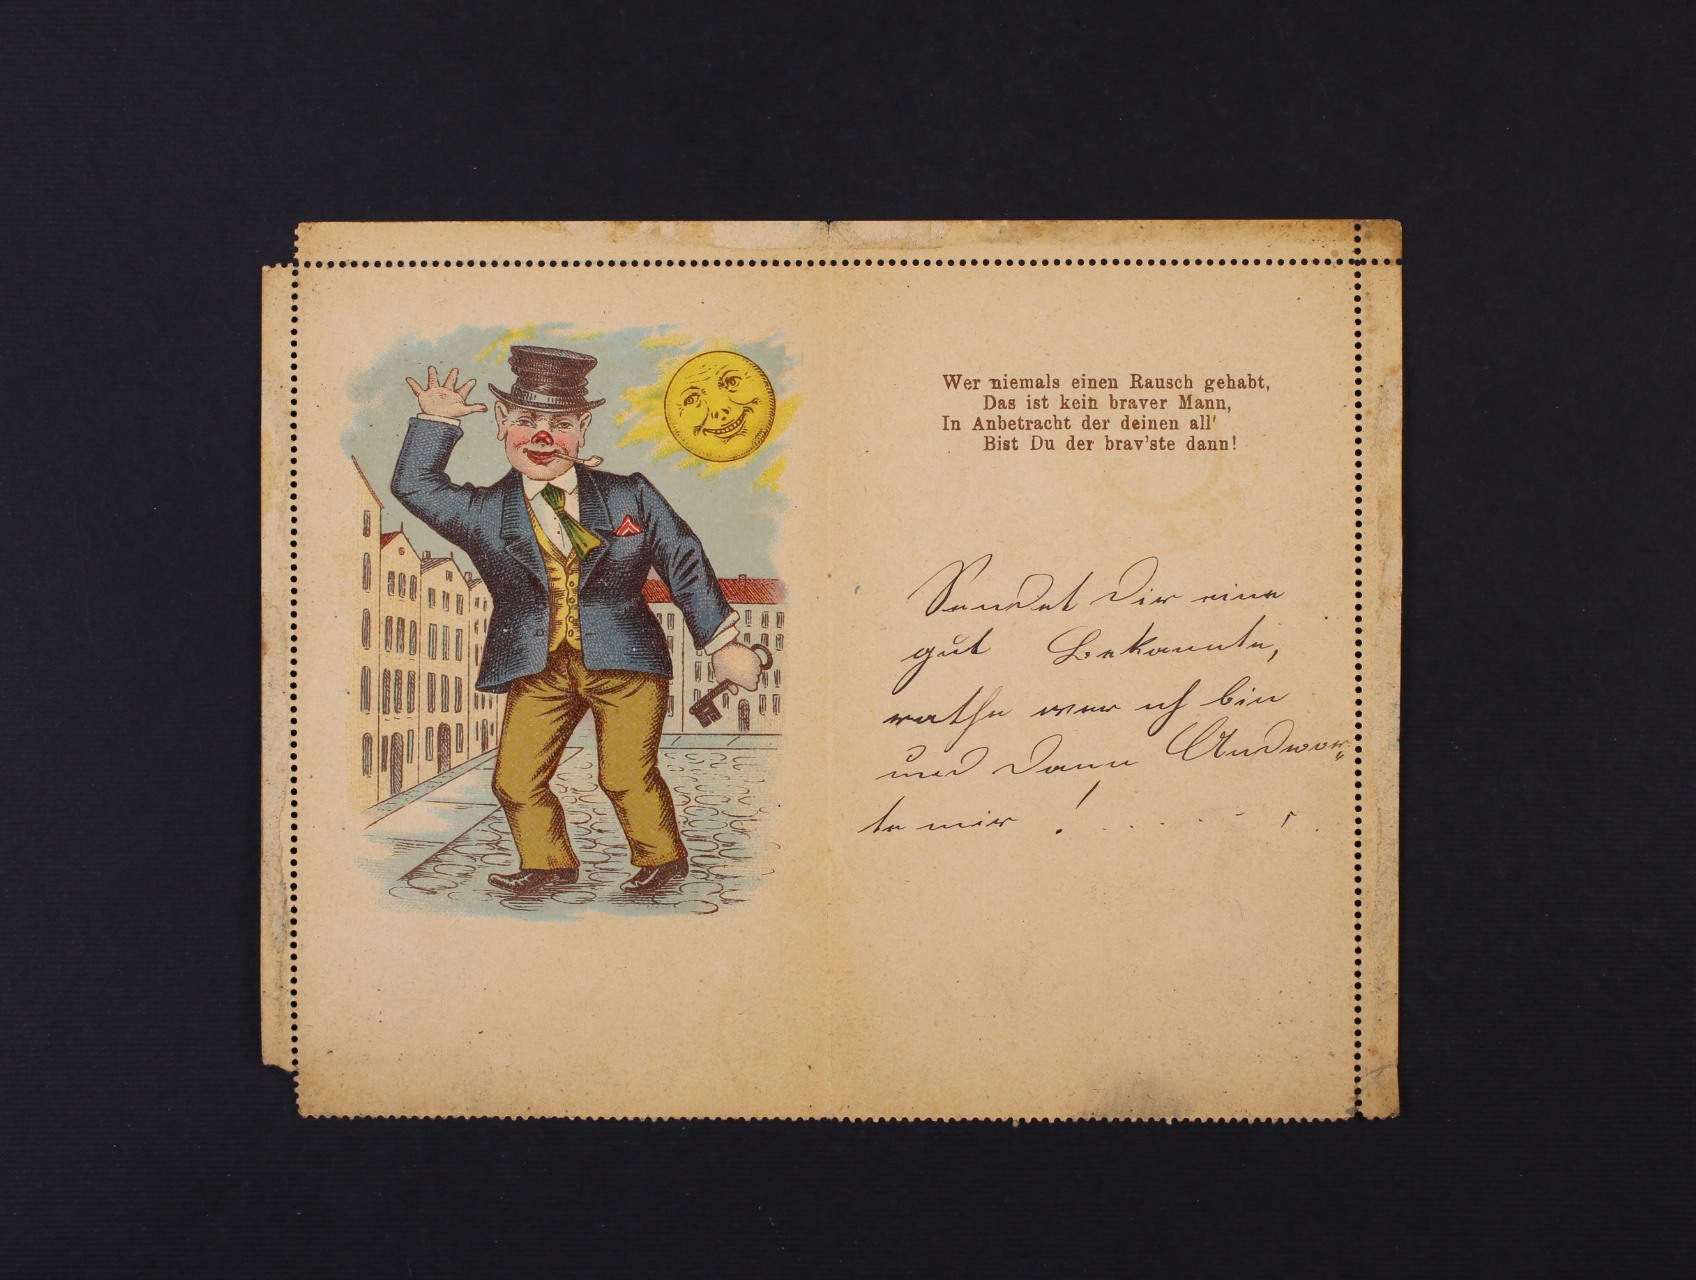 Wer niemals einen Rausch gehabt,
Das ist kein braver Mann,
In Anbetracht der deinen all'
Bist Du der brav'ste dann!
Sendet Dir eine
gut Bekannte,
rathe wer ich bin
und dann Andwor„
te mir !